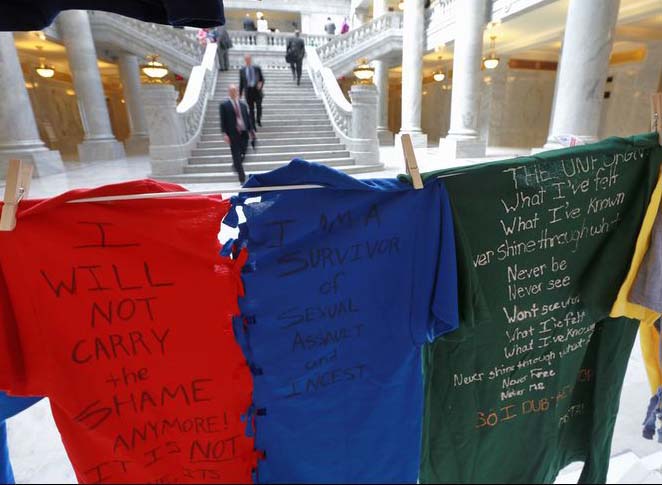 I
WILL
NOT
CARRY
the
SHAME
ANYMORE!
IT IS NOT
I AM A
SURVIVOR
of
SEXUAL
ASSAULT
and
INCEST
THE
What I've felt
What I've known
ver shine through what
Never be
Never see
Want see
What I've felt
What I've know
Never shine through what
Never Free
Never Me
SO I DUB